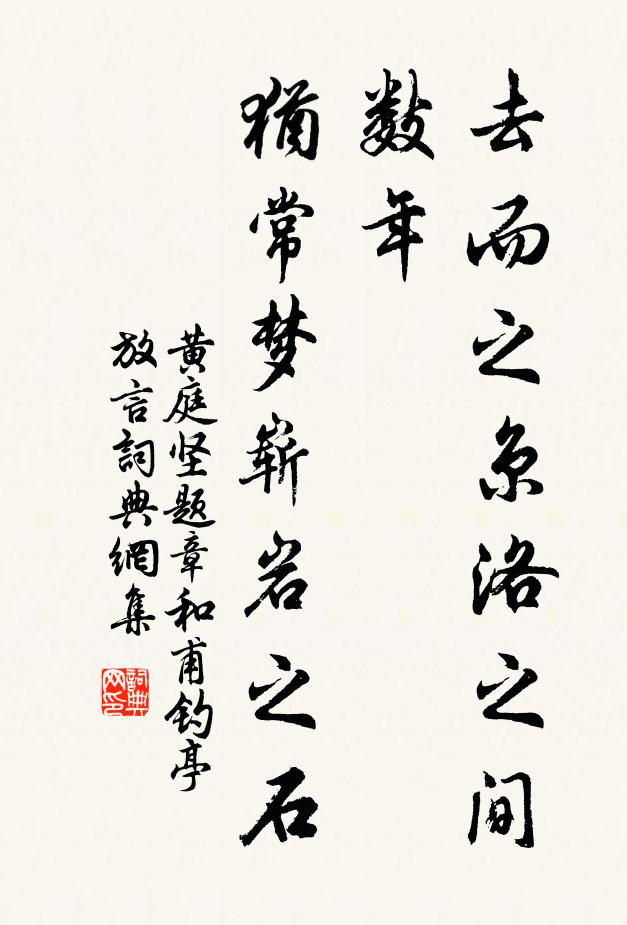 去而之京洛之间
数年
犹常梦崭岩之石
黄庭坚题章和甫钓亭
放言詞典網集
詞典网印